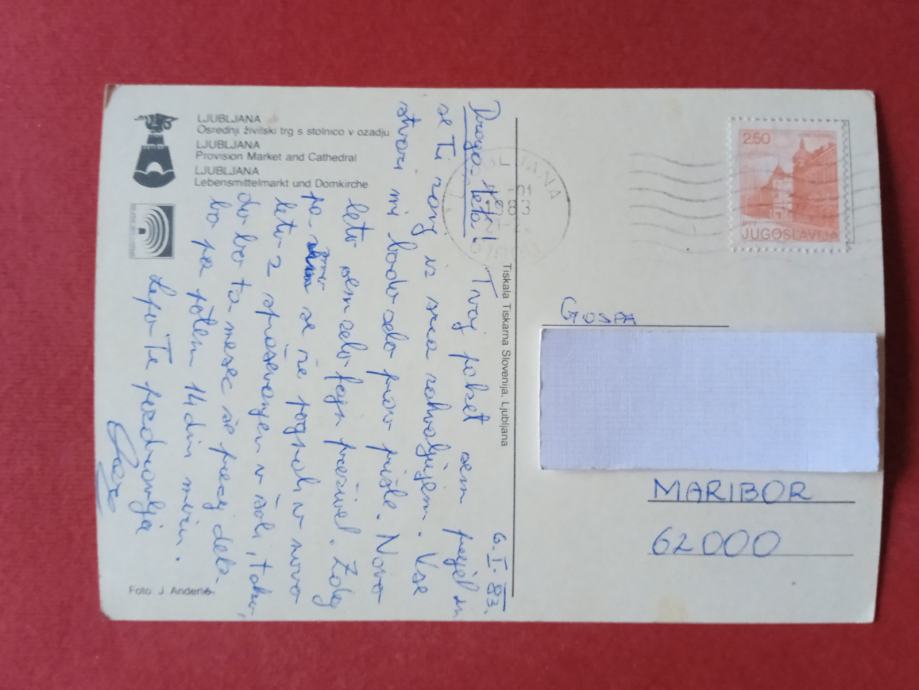 LJUBLJANA
Osrednji živilski trg s stolnico v ozadju
LJUBLJANA
Provision Market and Cathedral
LJUBLJANA
Lebensmittelmarkt und Domkirche
6. I. 83.
Draga teta! Tvoj paket sem prejel in
se Ti zanj iz srca zahvaljujem. Vse
stvari mi bodo zelo prav prišle. Novo
leto sem zelo fajn preživel. Zdaj
pa smo se že pognali v novo
leto z spraševanjem v šoli, tako,
da bo ta mesec še precej dela
bo pa potem 14 dni miru.
Lepo Te pozdravlja
Foto J. Anderlič
Tiskala Tiskarna Slovenija, Ljubljana
LJUBLJANA
1983
2.50
JUGOSLAVIJA
GOSPA
MARIBOR
62000